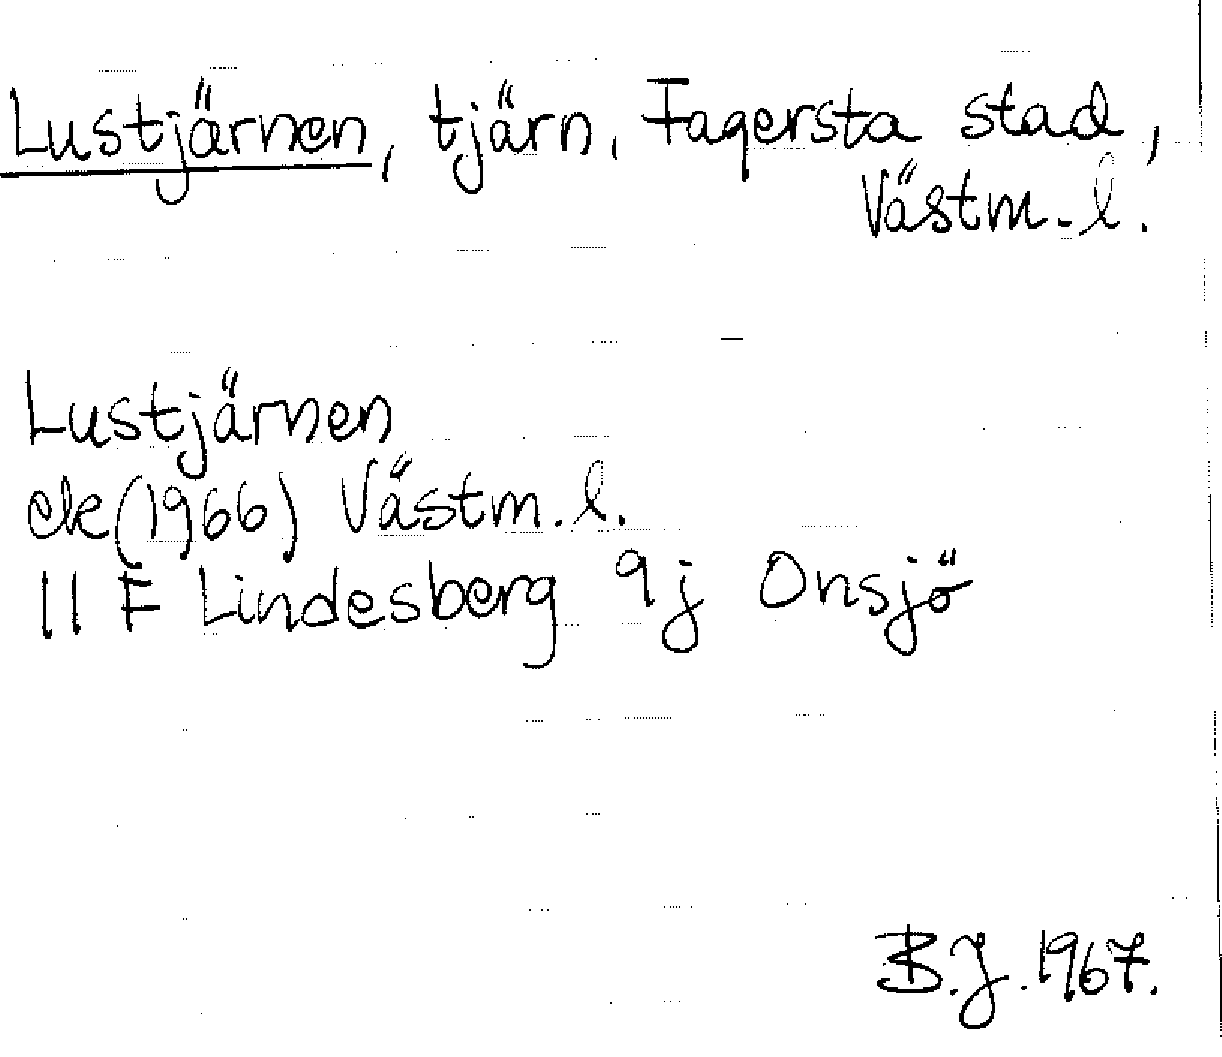 Lustjärnen, tjärn, Fagersta stad,
Västm. l.
Lustjärnen
ek (1966) Västm. l.
11 F Lindesberg 9j Onsjö
B.J. 1967.